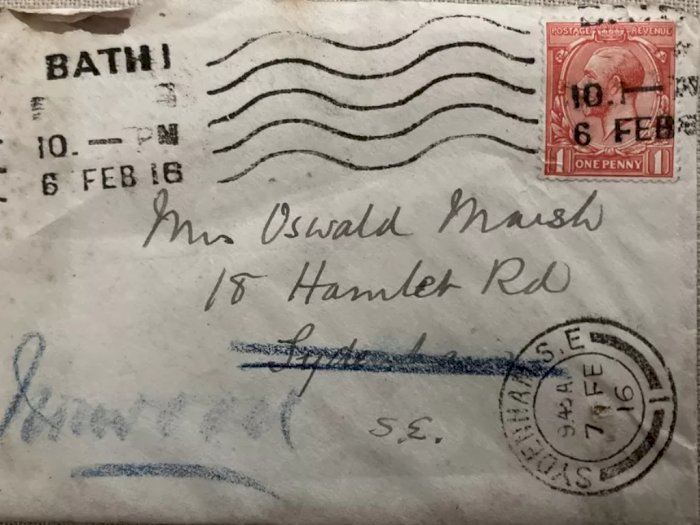 BATH
10. — PM
6 FEB 16
POSTAGE REVENUE
10. —
6 FEB
1 ONE PENNY 1
Mrs Oswald Marsh
18 Hamlet Rd
Sydenham
S.E.
SYDENHAM S.E.
9.45 A
7 FE
16
1